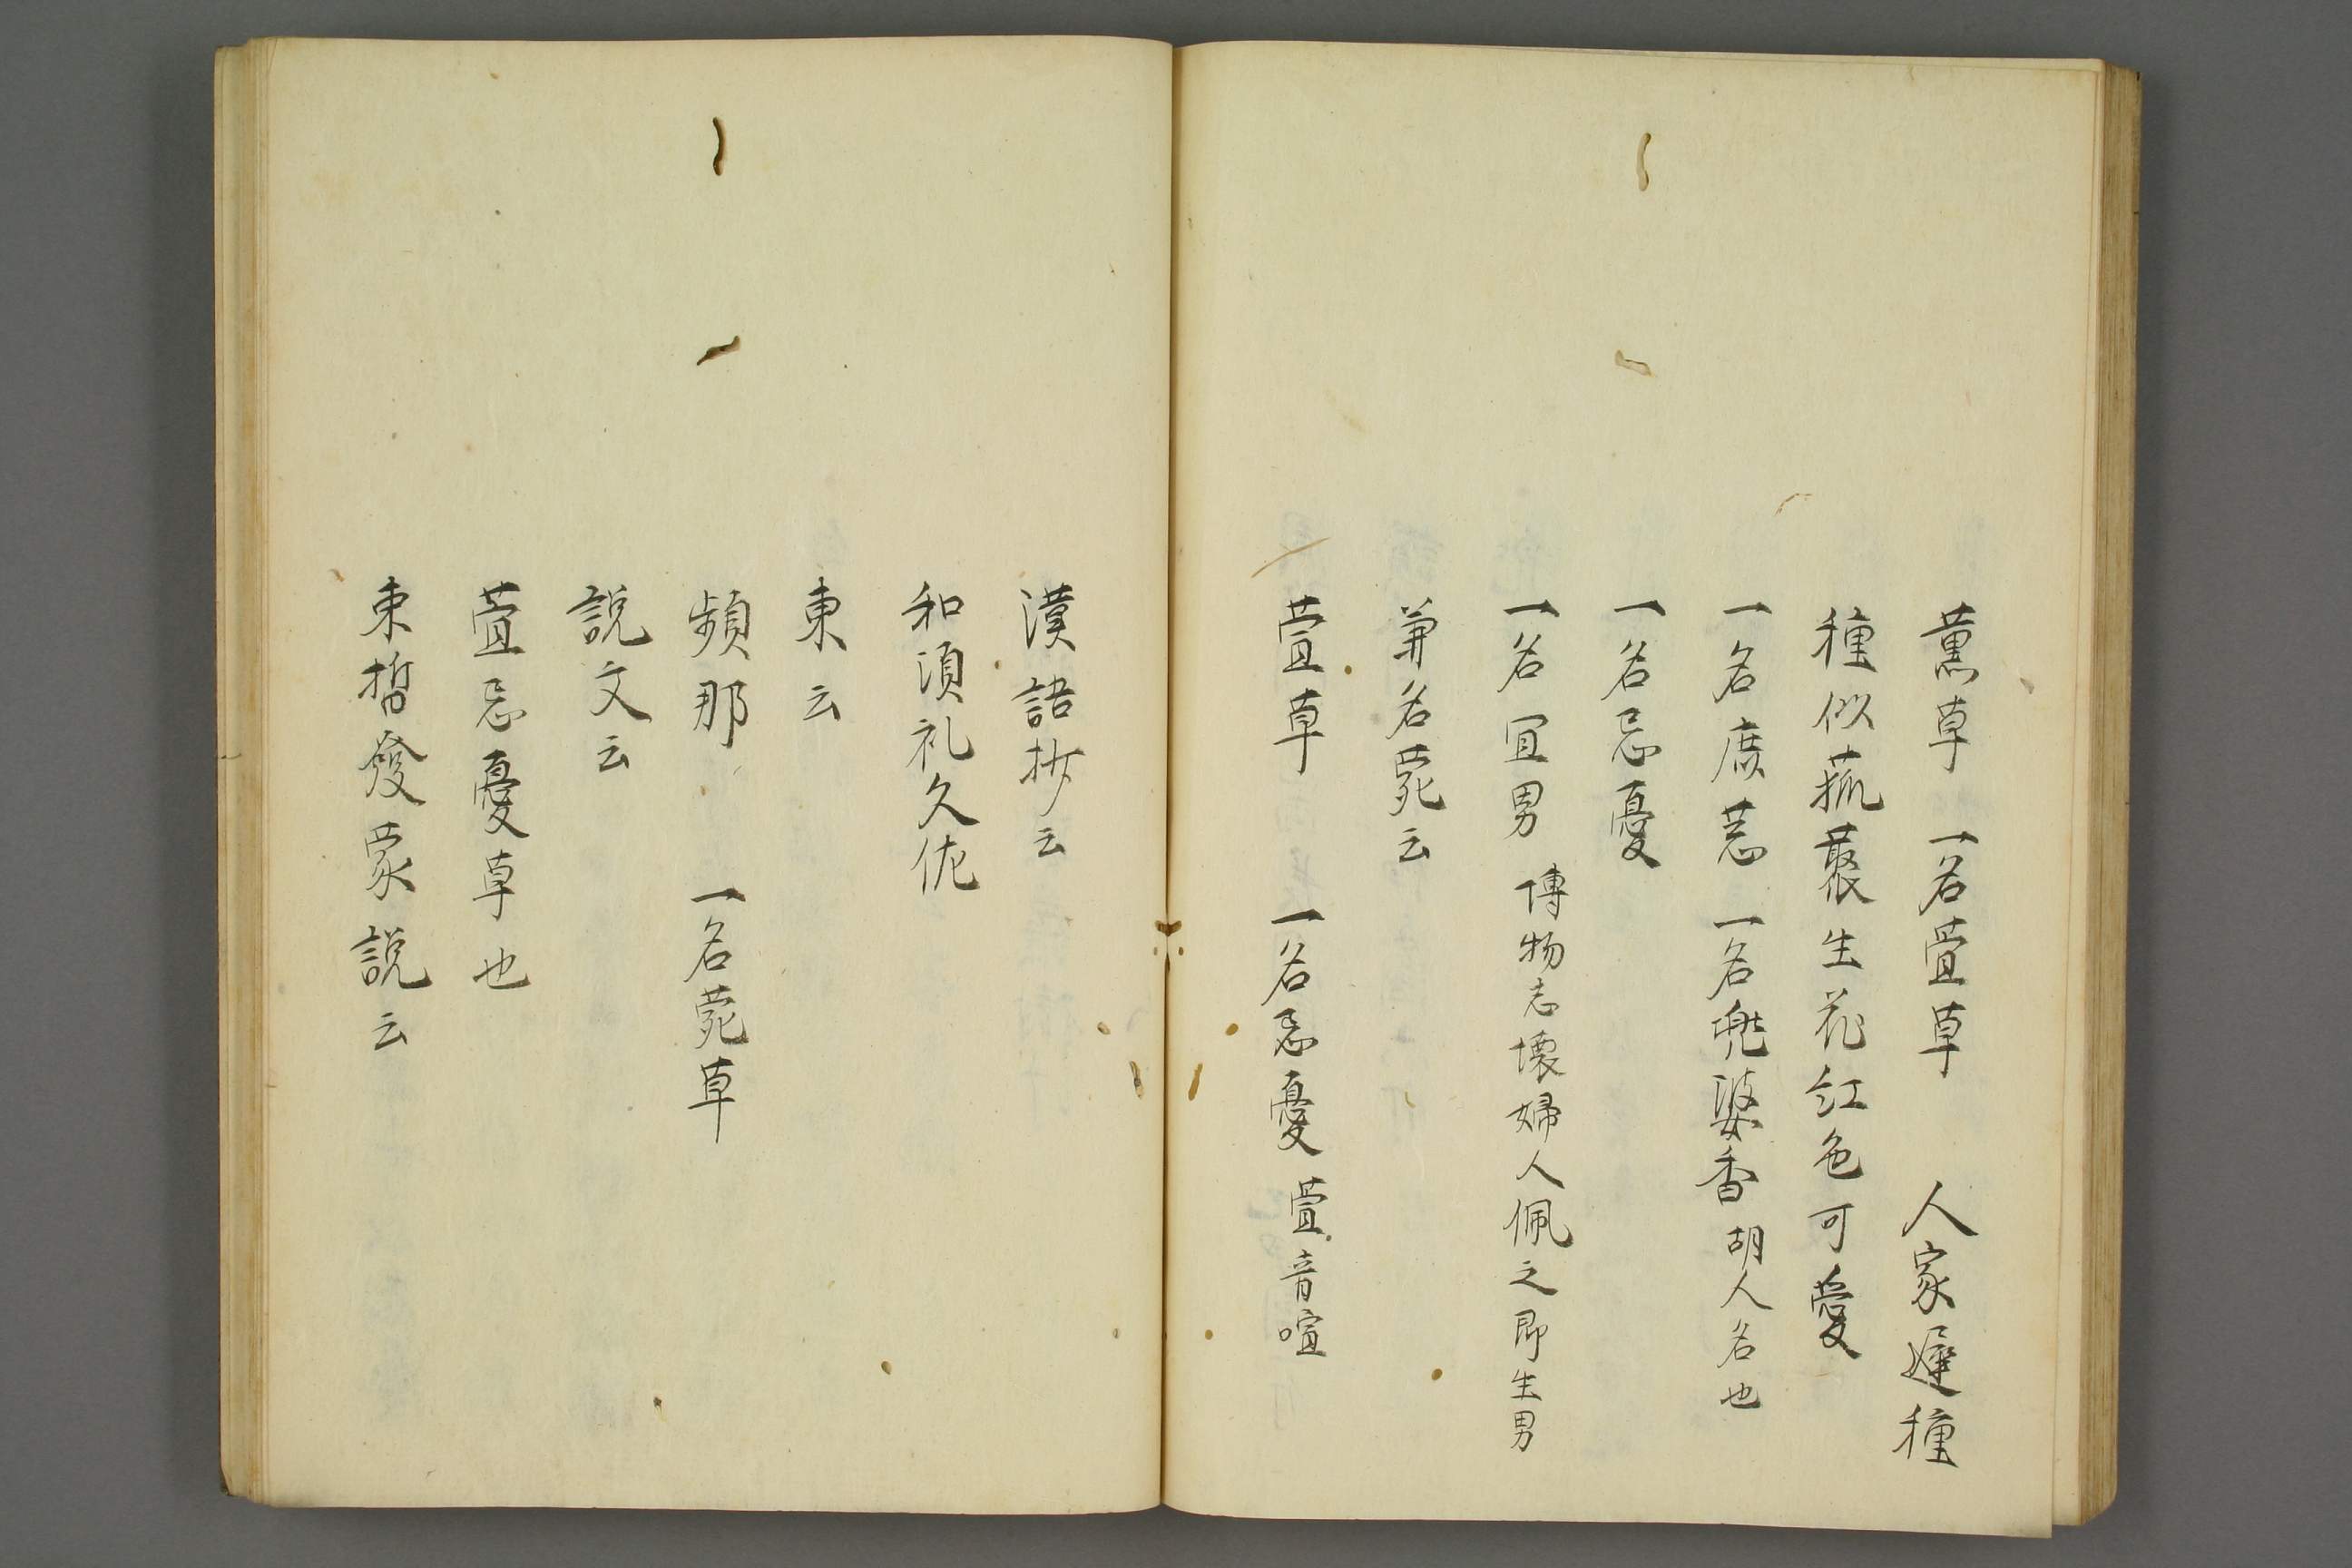 薫草　一名萱草　人家遅種
種似菰蘩生花紅色可愛
一名庶莣　一名兠婆香　胡人名也
一名忘憂
一名宜男　博物志懐婦人佩之即生男
兼名菀云
萱草　一名忘憂　萱音喧
漢語抄云
和須礼久佐
東云
頻那　一名菀草
説文云
萱忘憂草也
束晳發蒙説云